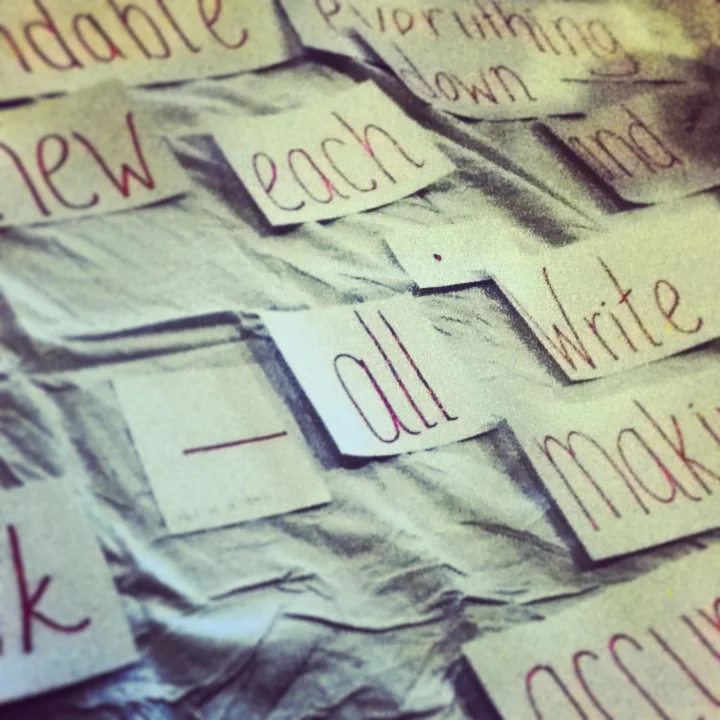 ndable everything
down
new each and
.
all Write
—
making
k
occu